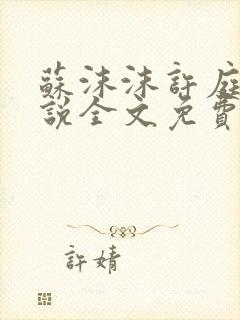 蘇沫沫許庭
說全文免費
許婧